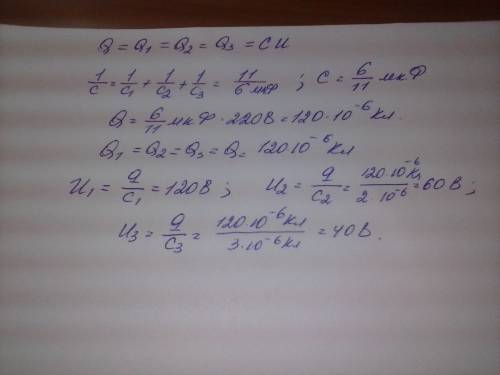 Q = Q₁ = Q₂ = Q₃ = CU
1/C = 1/C₁ + 1/C₂ + 1/C₃ = 11/6мкФ ; C = 6/11 мкФ
Q = 6/11 мкФ · 220В = 120 · 10⁻⁶ Кл.
Q₁ = Q₂ = Q₃ = Q = 120 10⁻⁶ Кл
U₁ = q/C₁ = 120В ; U₂ = q/C₂ = 120·10⁻⁶Кл/2·10⁻⁶ = 60В ;
U₃ = q/C₃ = 120·10⁻⁶Кл/3·10⁻⁶Кл = 40В.